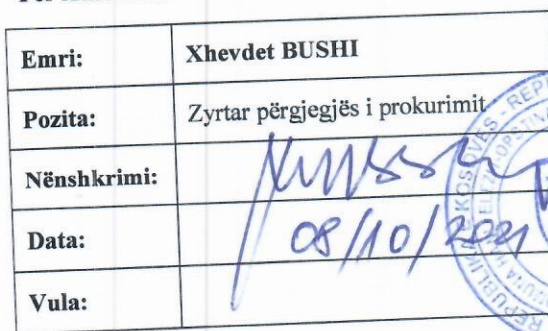 Emri: Xhevdet BUSHI
Pozita: Zyrtar përgjegjës i prokurimit
Nënshkrimi:
Data: 08/10/2021
Vula: